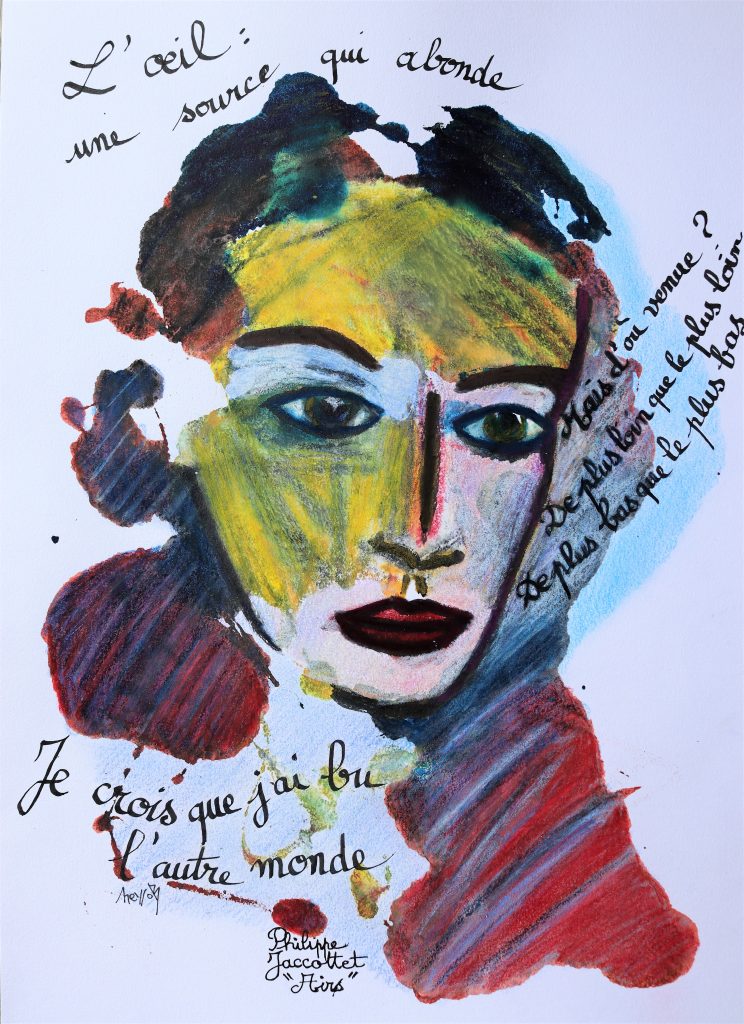 L'œil :
une source qui abonde
Mais d'où venue ?
De plus loin que le plus loin
De plus bas que le plus bas
Je crois que j'ai bu
l'autre monde
Philippe
Jaccottet
"Airs"